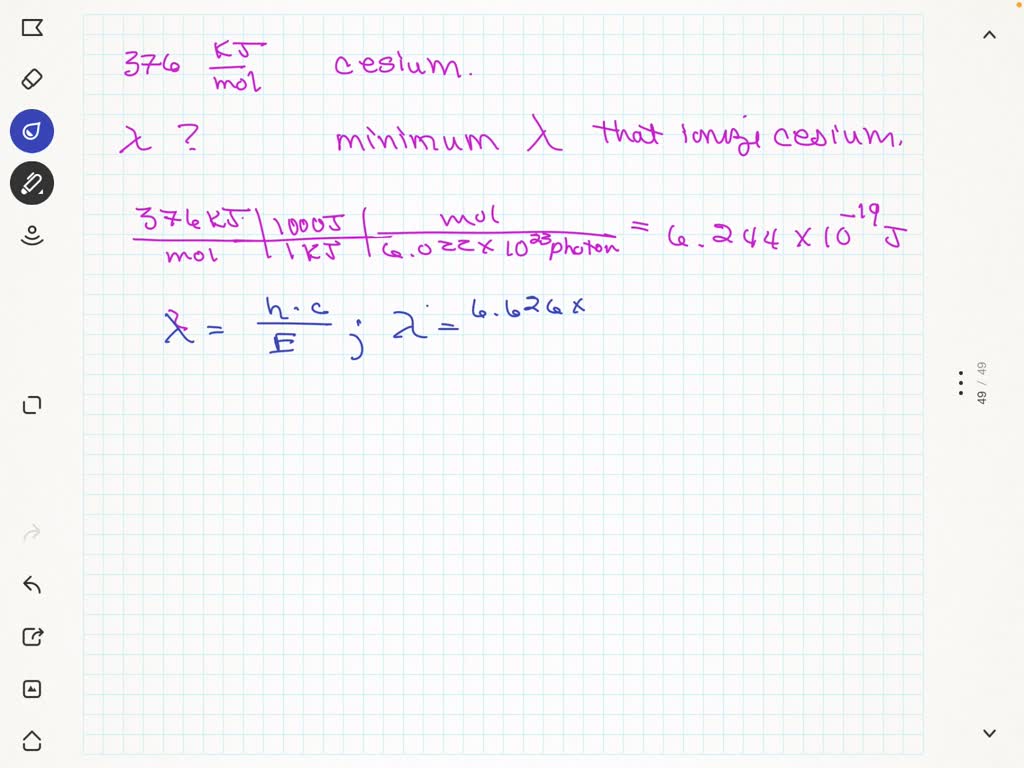 376 KJ/mol cesium.
λ ? minimum λ that ionize cesium.
376 KJ/mol | 1000J/1 KJ | mol/6.022 x 10^23 photon = 6.244 x 10^-19 J
λ = h·c/E ; λ = 6.626 x
49 / 49